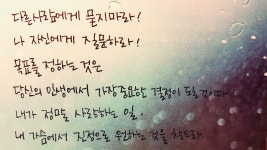 다른사람에게 묻지마라!
나 자신에게 질문하라!
목표를 정하는 것은
당신의 인생에서 가장중요한 결정이 될것이다
내가 정말 사랑하는 일,
내 가슴에서 진정으로 원하는 것을 찾으라